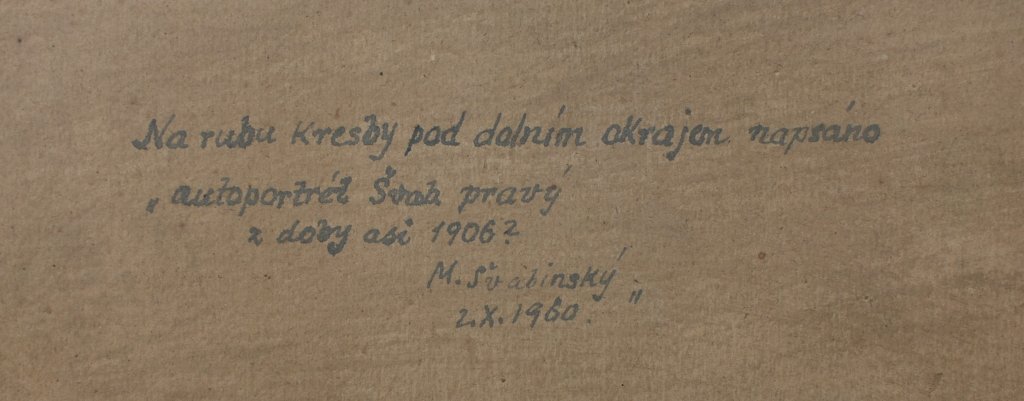 Na rubu kresby pod dolním okrajem napsáno
„autoportrét Švab pravý
z doby asi 1906?
M. Švabinský."
2.X.1960.